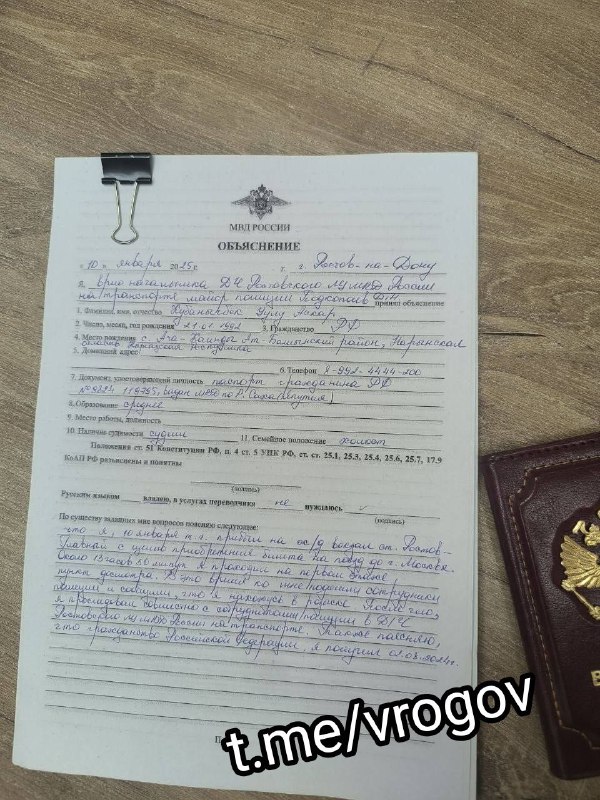 МВД РОССИИ
ОБЪЯСНЕНИЕ
"10" января 2025 г. г. Ростов-на-Дону
Я, врио начальника ДЧ Ростовского ЛУ МВД России
на транспорте майор полиции принял объяснение
1. Фамилия, имя, отчество Кубанычбек Уулу
2. Число, месяц, год рождения 21.01.1992 3. Гражданство РФ
4. Место рождения с. Ача-Каинды Ат-Башынский район, Нарынская
область Киргизская Республика
5. Домашний адрес:
6. Телефон
7. Документ, удостоверяющий личность паспорт гражданина РФ
выдан МВД по Р. Саха (Якутия)
8. Образование среднее
9. Место работы, должность
10. Наличие судимости судим 11. Семейное положение холост
Положения ст. 51 Конституции РФ, п. 4 ст. 5 УПК РФ, ст. ст. 25.1, 25.3, 25.4, 25.6, 25.7, 17.9
КоАП РФ разъяснены и понятны
(подпись)
Русским языком владею, в услугах переводчика не нуждаюсь
(подпись)
По существу заданных мне вопросов поясняю следующее:
что я, 10 января т.г. прибыл на ж/д вокзал ст. Ростов-
Главный с целью приобретения билета на поезд до г. Москва.
Около 13 часов 50 минут я проходил на первом этаже
пункты досмотра. В это время ко мне подошли сотрудники
полиции и сообщили, что я нахожусь в розыске. После чего,
я проследовал совместно с сотрудниками полиции в ДЧ
Ростовского ЛУ МВД России на транспорте. Также поясняю,
что гражданство Российской Федерации я получил 01.03.2024г.
t.me/vrogov